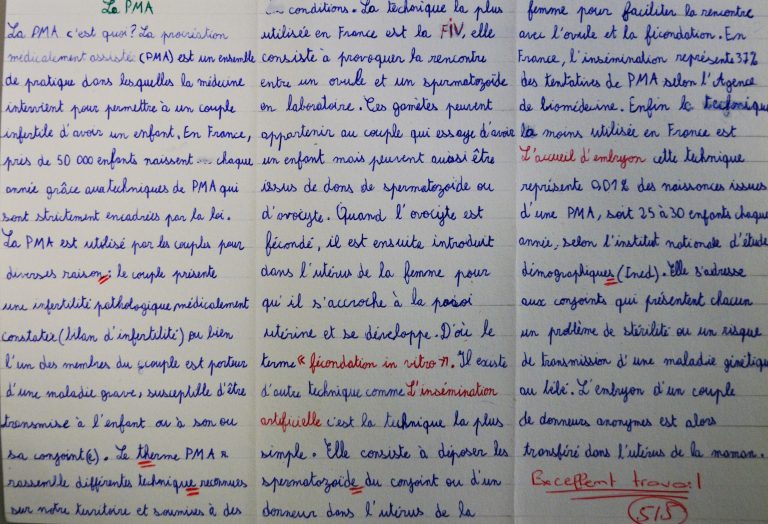 La PMA
La PMA c'est quoi? La procréation
médicalement assistée (PMA) est un ensemble
de pratique dans lesquelles la médecine
intervient pour permettre à un couple
infertile d'avoir un enfant. En France,
près de 50 000 enfants naissent chaque
année grâce aux techniques de PMA qui
sont strictement encadrées par la loi.
La PMA est utilisé par les couples pour
diverses raison : le couple présente
une infertilité pathologique, médicalement
constatée (bilan d'infertilité) ou bien
l'un des membres du couple est porteur
d'une maladie grave, susceptible d'être
transmise à l'enfant ou à son ou
sa conjoint(e). Le therme PMA
rassemble différentes technique reconnues
sur notre territoire et soumises à des
conditions. La technique la plus
utilisée en France est la FIV, elle
consiste à provoquer la rencontre
entre un ovule et un spermatozoïde
en laboratoire. Ces gamètes peuvent
appartenir au couple qui essaye d'avoir
un enfant mais peuvent aussi être
issus de dons de spermatozoïde ou
d'ovocyte. Quand l'ovocyte est
fécondé, il est ensuite introduit
dans l'utérus de la femme pour
qu'il s'accroche à la paroi
utérine et se développe. D'où le
terme « fécondation in vitro ». Il existe
d'autre technique comme L'insémination
artificielle c'est la technique la plus
simple. Elle consiste à déposer les
spermatozoïde du conjoint ou d'un
donneur dans l'utérus de la
femme pour faciliter la rencontre
avec l'ovule et la fécondation. En
France, l'insémination représente 37%
des tentatives de PMA selon l'Agence
de biomédecine. Enfin la technique
la moins utilisée en France est
L'accueil d'embryon cette technique
représente 0,01% des naissances issues
d'une PMA, soit 25 à 30 enfants chaque
année, selon l'institut nationale d'étude
démographiques (Ined). Elle s'adresse
aux conjoints qui présentent chacun
un problème de stérilité ou un risque
de transmission d'une maladie génétique
au bébé. L'embryon d'un couple
de donneurs anonymes est alors
transféré dans l'utérus de la maman.
Excellent travail
5/5